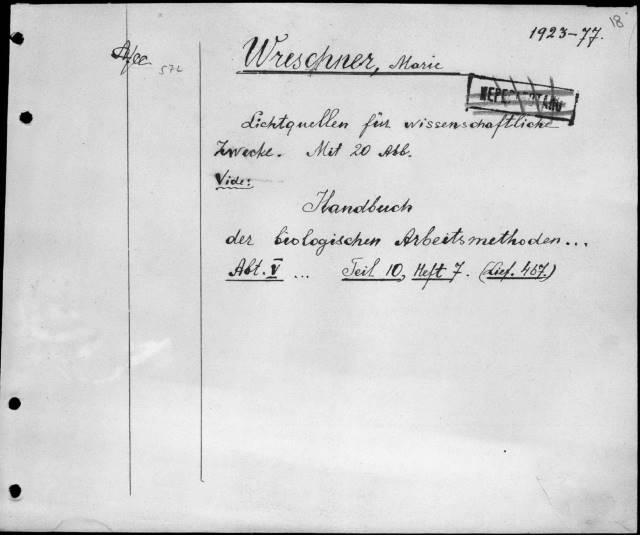 18
1923-77.
572
Wreschner, Marie
Lichtquellen für wissenschaftliche
Zwecke. Mit 20 Abb.
Vide:
Handbuch
der biologischen Arbeitsmethoden...
Abt. V ... Teil 10, Heft 7. (Lief. 407.)